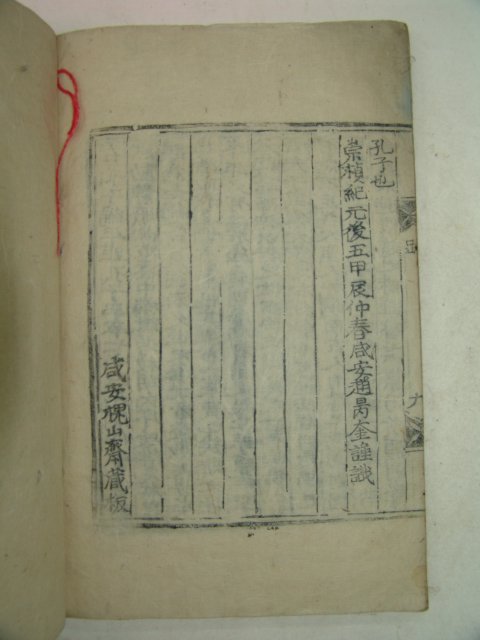 孔子也
崇禎紀元後五甲辰仲春咸安趙昺奎謹識
咸安槐山齋藏板
九